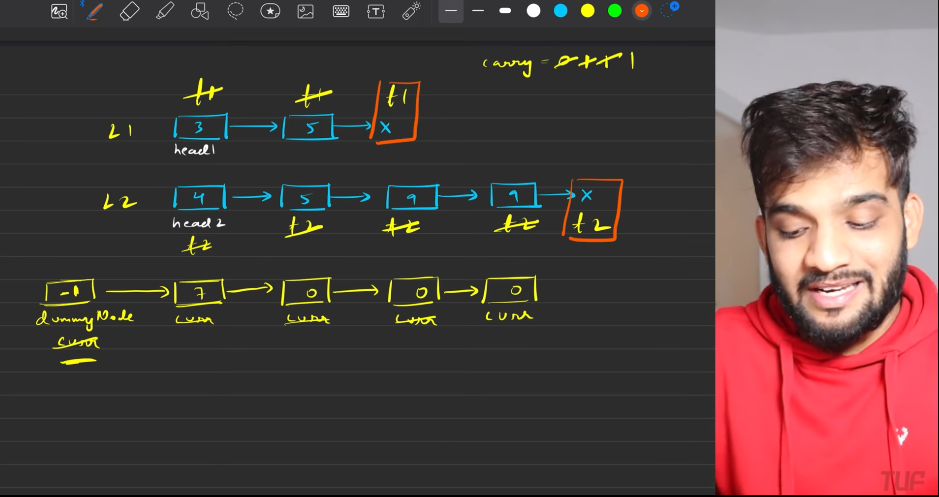 carry = 0 1 1 1
t1 t1 t1
L1 3 5 x
head1
L2 4 5 9 9 x
head2 t2 t2 t2 t2
t2
-1 7 0 0 0
dummyNode curr curr curr curr
curr
TUF